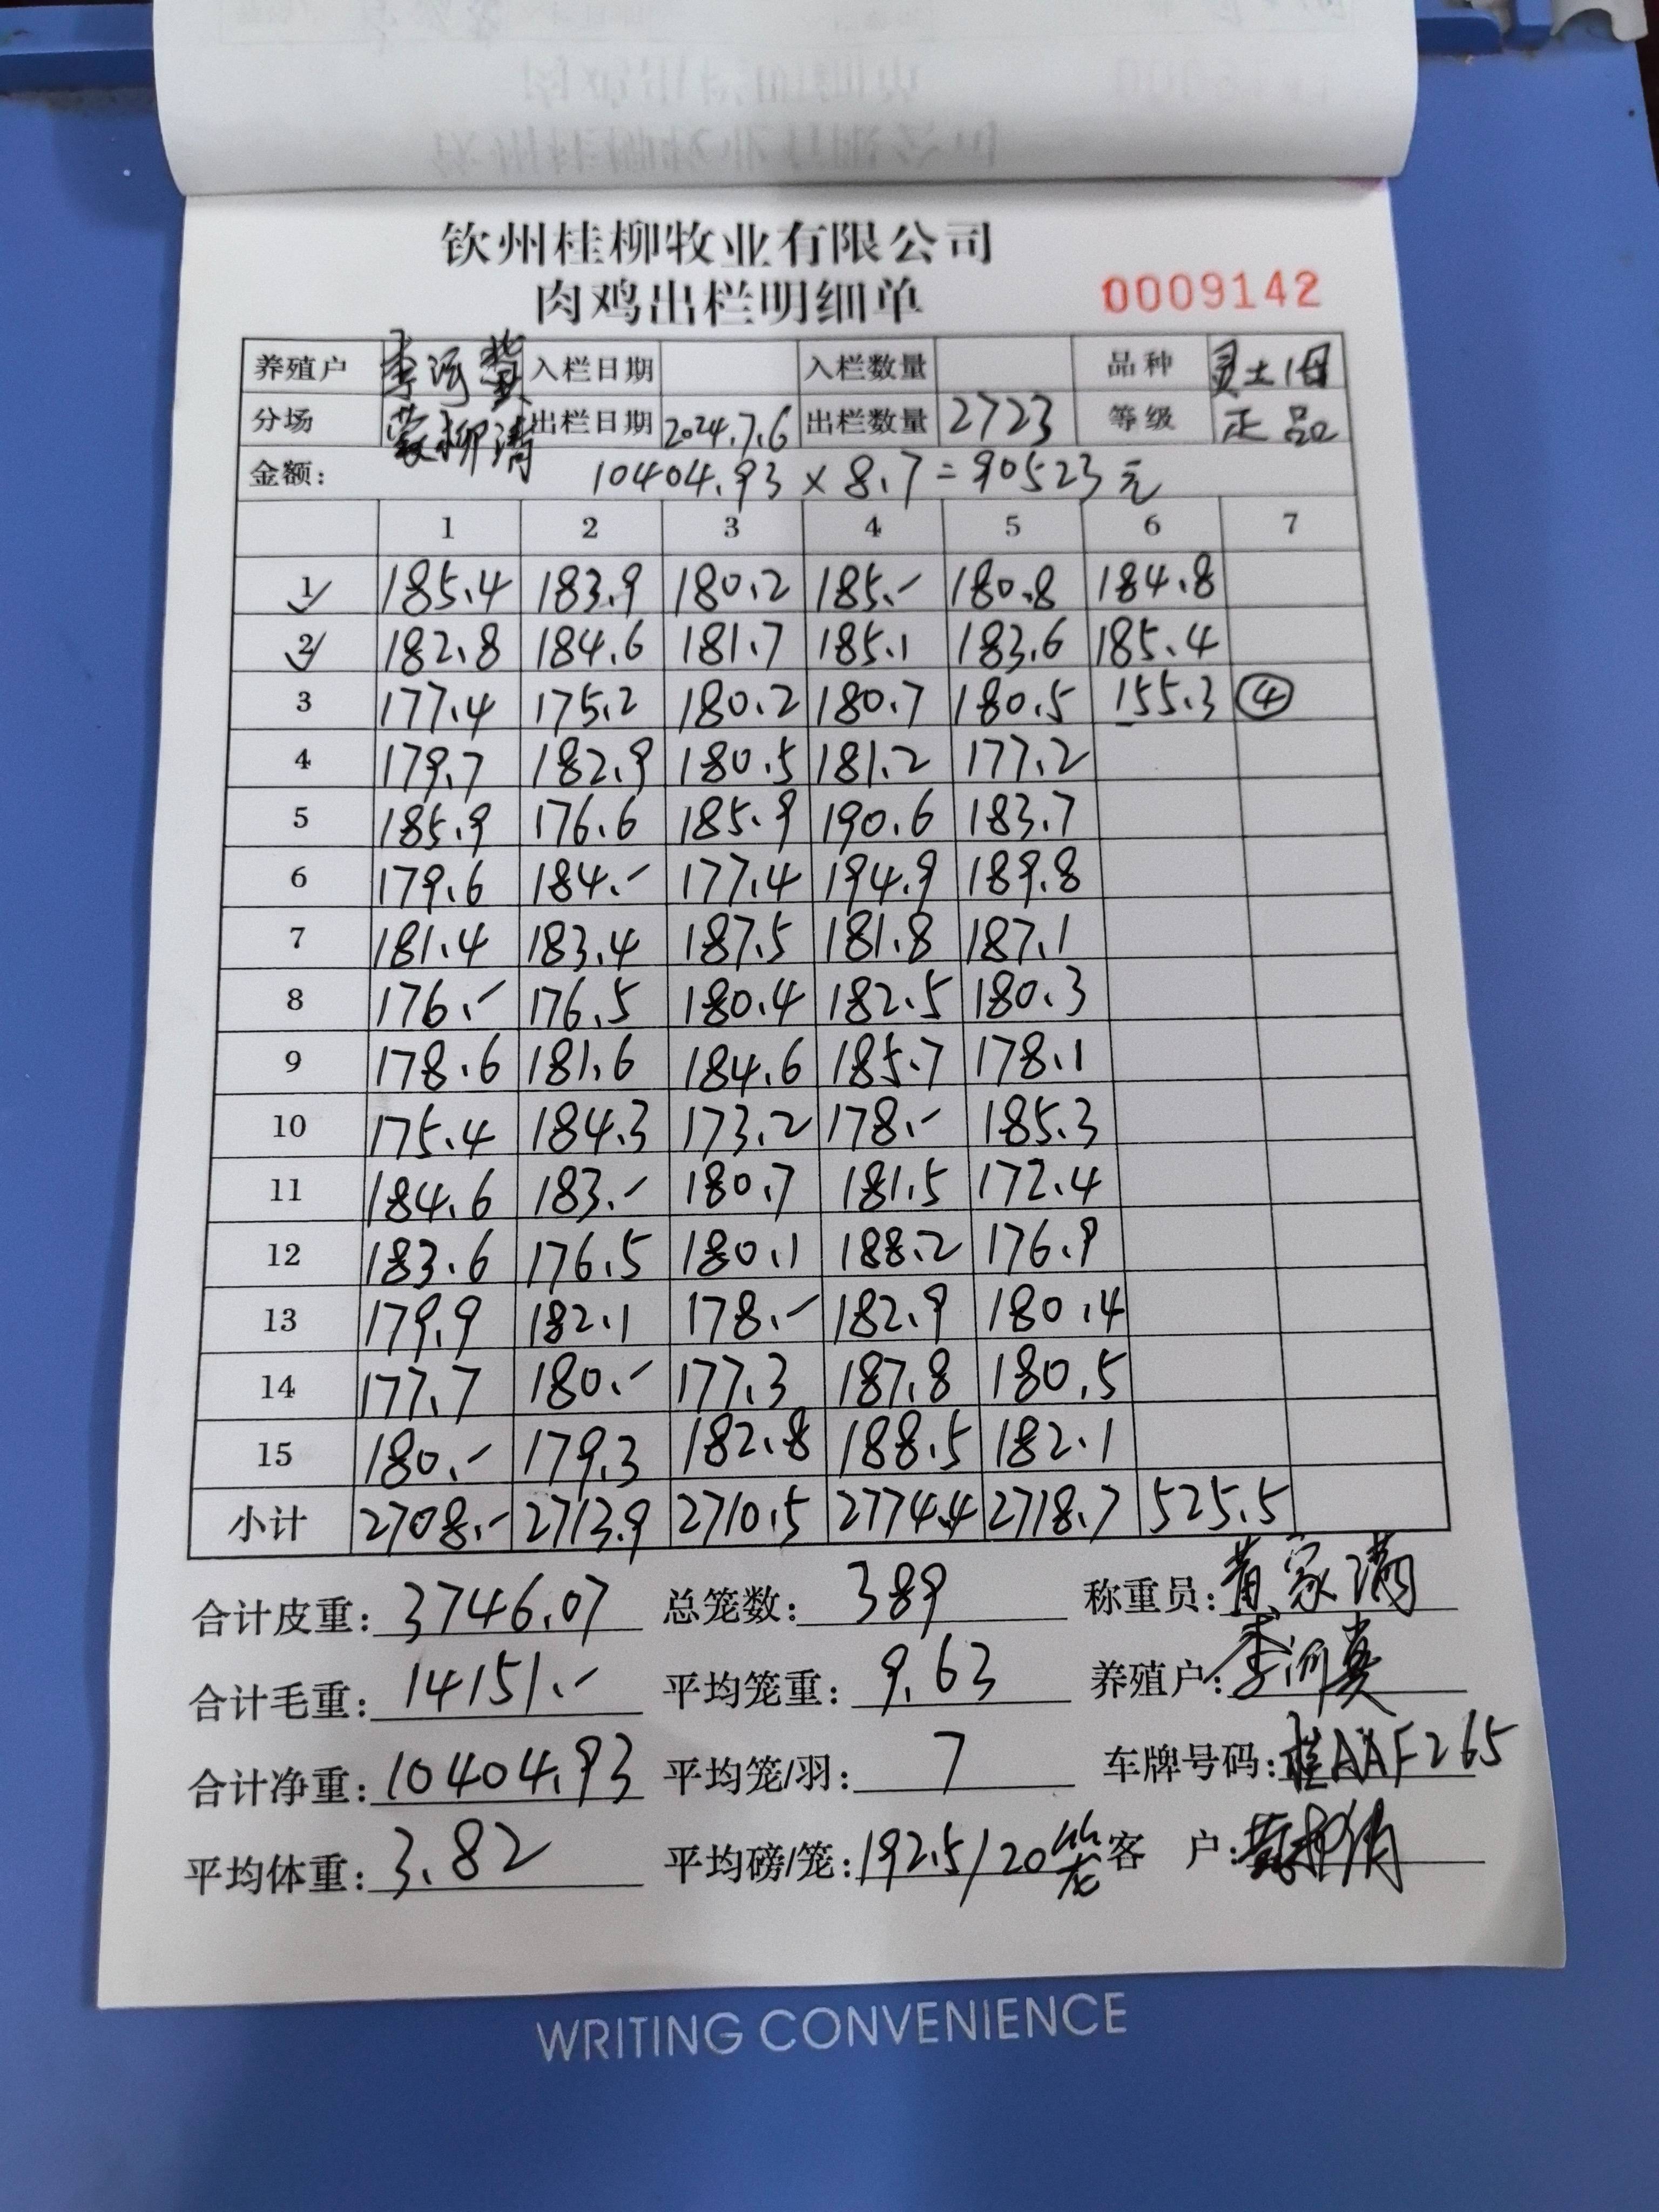 钦州桂柳牧业有限公司
肉鸡出栏明细单 0009142
养殖户 李河 入栏日期 入栏数量 品种 灵土
分场 蒙柳清 出栏日期 2024.7.6 出栏数量 2723 等级 正品
金额: 10404.93 × 8.7 = 90523 元
1 2 3 4 5 6 7
1 185.4 183.9 180.2 185.- 180.8 184.8
2 182.8 184.6 181.7 185.1 183.6 185.4
3 177.4 175.2 180.2 180.7 180.5 155.3 ④
4 179.7 182.9 180.5 181.2 177.2
5 185.9 176.6 185.9 190.6 183.7
6 179.6 184.- 177.4 194.9 189.8
7 181.4 183.4 187.5 181.8 187.1
8 176.- 176.5 180.4 182.5 180.3
9 178.6 181.6 184.6 185.7 178.1
10 175.4 184.3 173.2 178.- 185.3
11 184.6 183.- 180.7 181.5 172.4
12 183.6 176.5 180.1 188.2 176.9
13 179.9 182.1 178.- 182.9 180.4
14 177.7 180.- 177.3 187.8 180.5
15 180.- 179.3 182.8 188.5 182.1
小计 2708.- 2713.9 2710.5 2774.4 2718.7 525.5
合计皮重: 3746.07 总笼数: 389 称重员: 黄家满
合计毛重: 14151.- 平均笼重: 9.63 养殖户: 李河
合计净重: 10404.93 平均笼/羽: 7 车牌号码: 桂AAF265
平均体重: 3.82 平均磅/笼: 192.5/20笼 客 户:
WRITING CONVENIENCE